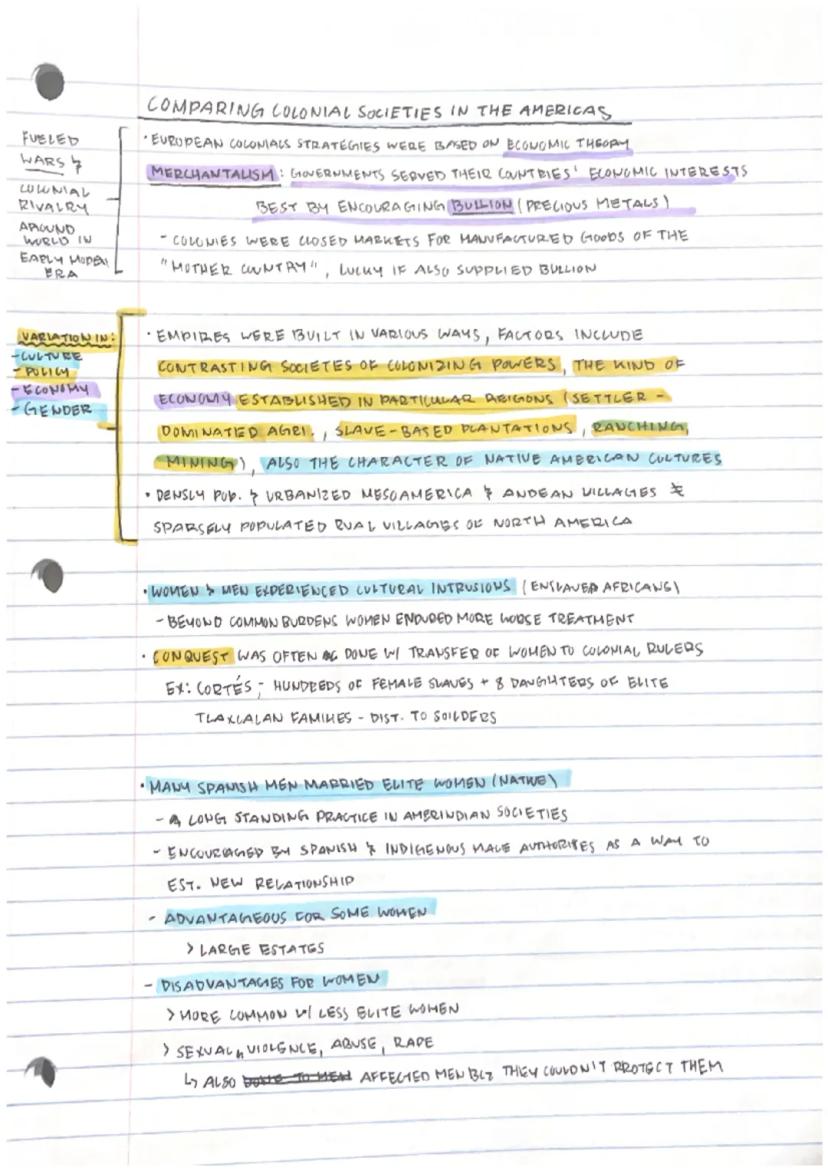 COMPARING COLONIAL SOCIETIES IN THE AMERICAS
FUELED
WARS &
COLONIAL
RIVALRY
AROUND
WORLD IN
EARLY MODERN
ERA
• EUROPEAN COLONIALS STRATEGIES WERE BASED ON ECONOMIC THEORY
MERCHANTALISM: GOVERNMENTS SERVED THEIR COUNTRIES' ECONOMIC INTERESTS
BEST BY ENCOURAGING BULLION (PRECIOUS METALS)
- COLONIES WERE CLOSED MARKETS FOR MANUFACTURED GOODS OF THE
"MOTHER COUNTRY", LUCKY IF ALSO SUPPLIED BULLION
VARIATION IN:
- CULTURE
- POLICY
- ECONOMY
- GENDER
• EMPIRES WERE BUILT IN VARIOUS WAYS, FACTORS INCLUDE
CONTRASTING SOCIETES OF COLONIZING POWERS, THE KIND OF
ECONOMY ESTABLISHED IN PARTICULAR REIGONS (SETTLER -
DOMINATED AGRI., SLAVE-BASED PLANTATIONS, RANCHING,
MINING), ALSO THE CHARACTER OF NATIVE AMERICAN CULTURES
• DENSLY POP. & URBANIZED MESOAMERICA & ANDEAN VILLAGES ≠
SPARSELY POPULATED RUAL VILLAGES OF NORTH AMERICA
• WOMEN & MEN EXPERIENCED CULTURAL INTRUSIONS (ENSLAVED AFRICANS)
- BEYOND COMMON BURDENS WOMEN ENDURED MORE WORSE TREATMENT
• CONQUEST WAS OFTEN DONE W/ TRANSFER OF WOMEN TO COLONIAL RULERS
EX: CORTÉS; HUNDREDS OF FEMALE SLAVES + 8 DAUGHTERS OF ELITE
TLAXCALAN FAMILIES - DIST. TO SOILDERS
• MANY SPANISH MEN MARRIED ELITE WOMEN (NATIVE)
- A LONG STANDING PRACTICE IN AMERINDIAN SOCIETIES
- ENCOURAGED BY SPANISH & INDIGENOUS MALE AUTHORITIES AS A WAY TO
EST. NEW RELATIONSHIP
- ADVANTAGEOUS FOR SOME WOMEN
> LARGE ESTATES
- DISADVANTAGES FOR WOMEN
> MORE COMMON W/ LESS ELITE WOMEN
> SEXUAL VIOLENCE, ABUSE, RAPE
↳ ALSO DONE TO MEN AFFECTED MEN BLZ THEY COULDN'T PROTECT THEM